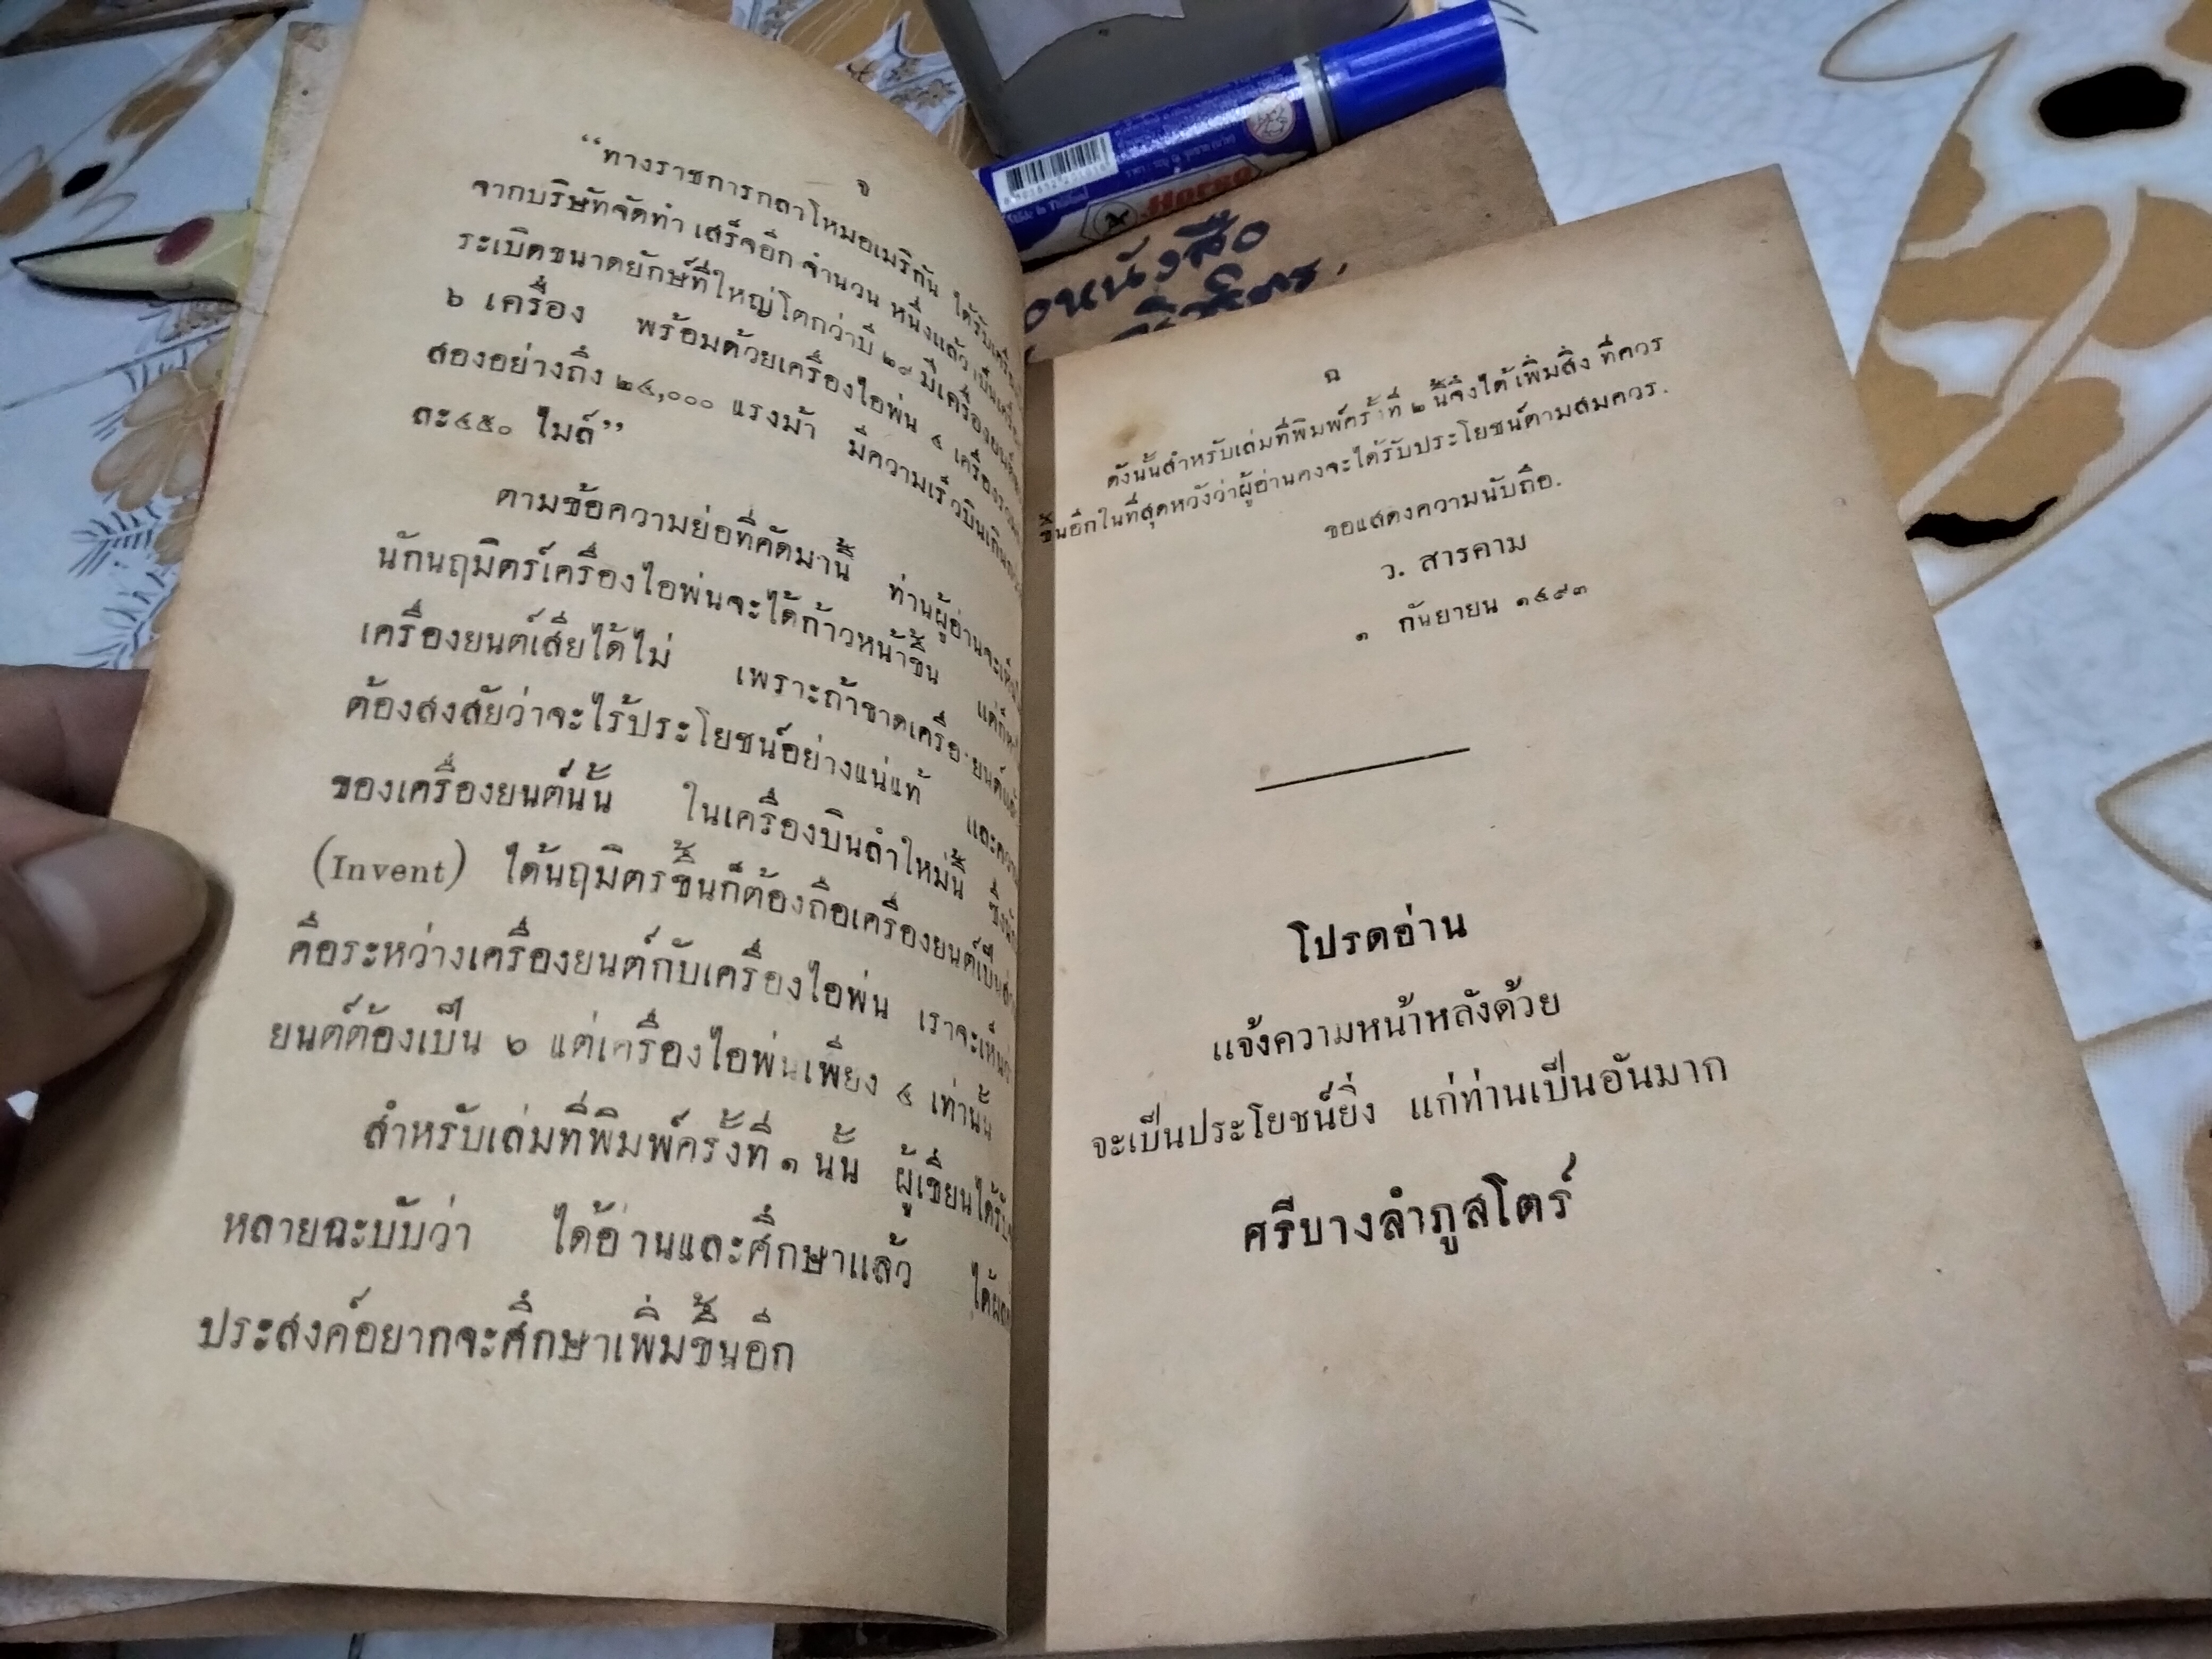 จ
“ทางราชการกลาโหมอเมริกัน ได้รับ
จากบริษัทจัดทำ เสร็จอีก จำนวน หนึ่งแล้ว เป็น
ระเบิดขนาดยักษ์ที่ใหญ่โตกว่าบี ๒๙ มีเครื่องยนต์
๖ เครื่อง พร้อมด้วยเครื่องไอพ่น ๔ เครื่อง
สองอย่างถึง ๒๔,๐๐๐ แรงม้า มีความเร็วบิน
ละ๔๕๐ ไมล์”
ตามข้อความย่อที่คัดมานี้ ท่านผู้อ่านจะ
นักนฤมิตร์เครื่องไอพ่นจะได้ก้าวหน้าขึ้น
เครื่องยนต์เสียได้ไม่ เพราะถ้าขาดเครื่องยนต์
ต้องสงสัยว่าจะไร้ประโยชน์อย่างแน่แท้
ของเครื่องยนต์นั้น ในเครื่องบินลำใหม่นี้
(Invent) ได้นฤมิตรขึ้นก็ต้องถือเครื่องยนต์เป็น
คือระหว่างเครื่องยนต์กับเครื่องไอพ่น เราจะ
ยนต์ต้องเป็น ๖ แต่เครื่องไอพ่นเพียง ๔ เท่านั้น
สำหรับเล่มที่พิมพ์ครั้งที่ ๑ นั้น ผู้เขียนได้
หลายฉะบับว่า ได้อ่านและศึกษาแล้ว
ประสงค์อยากจะศึกษาเพิ่มขึ้นอีก
ฉ
ดังนั้นสำหรับเล่มที่พิมพ์ครั้งที่ ๒ นี้จึงได้ เพิ่มสิ่ง ที่ควร
ขึ้นอีกในที่สุดหวังว่าผู้อ่านคงจะได้รับประโยชน์ตามสมควร.
ขอแสดงความนับถือ.
ว. สารคาม
๑ กันยายน ๒๔๙๓
โปรดอ่าน
แจ้งความหน้าหลังด้วย
จะเป็นประโยชน์ยิ่ง แก่ท่านเป็นอันมาก
ศรีบางลำภูสโตร์
Horse